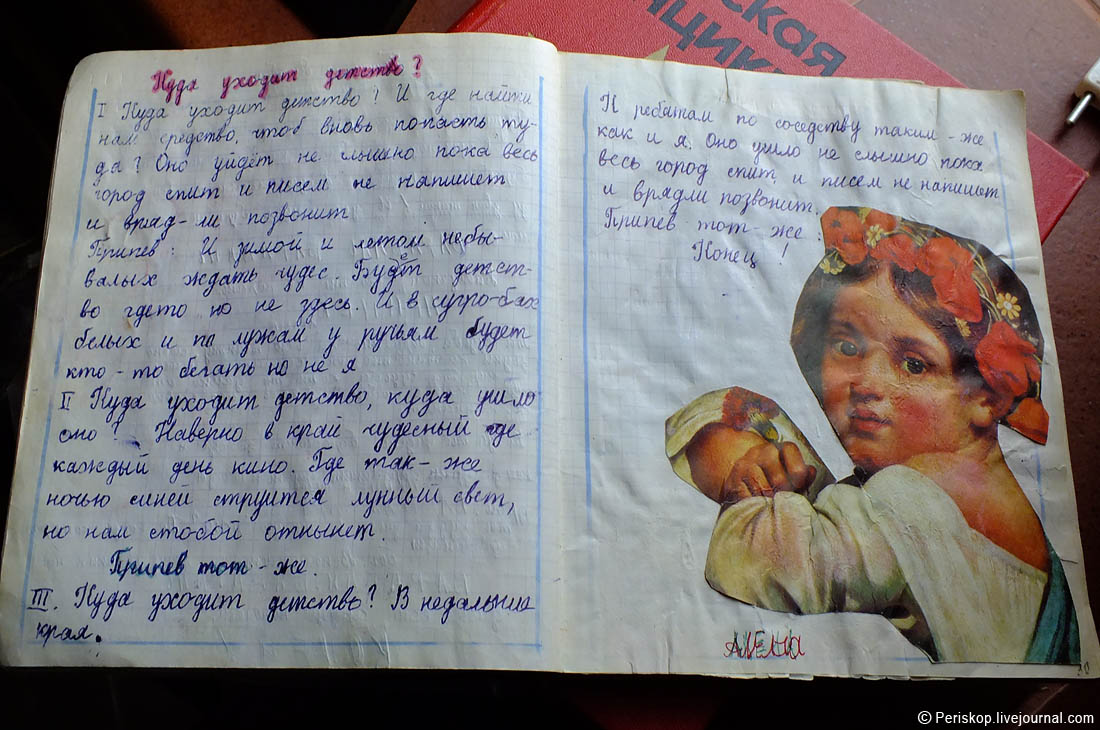 ская
нщик
Куда уходит детство?
I Куда уходит детство! И где найти
нам средство, чтоб вновь попасть ту-
да? Оно уйдёт не слышно пока весь
город спит и писем не напишет
и вряд-ли позвонит
Припев: И зимой и летом небы-
валых ждать чудес. Будет детст-
во гдето но не здесь. И в сугро-бах
белых и по лужам у ручьям будет
кто-то бегать но не я
II Куда уходит детство, куда ушло
оно? Наверно в край чудесный где
каждый день кино. Где так-же
ночью синей струится лунный свет,
но нам стобой отныне
Припев тот-же.
III. Куда уходит детство? В недальние
края.
К ребятам по соседству таким-же
как и я. Оно ушло не слышно пока
весь город спит и писем не напишит
и врядли позвонит.
Припев тот-же.
Конец!
АЛЕНА
© Periskop.livejournal.com